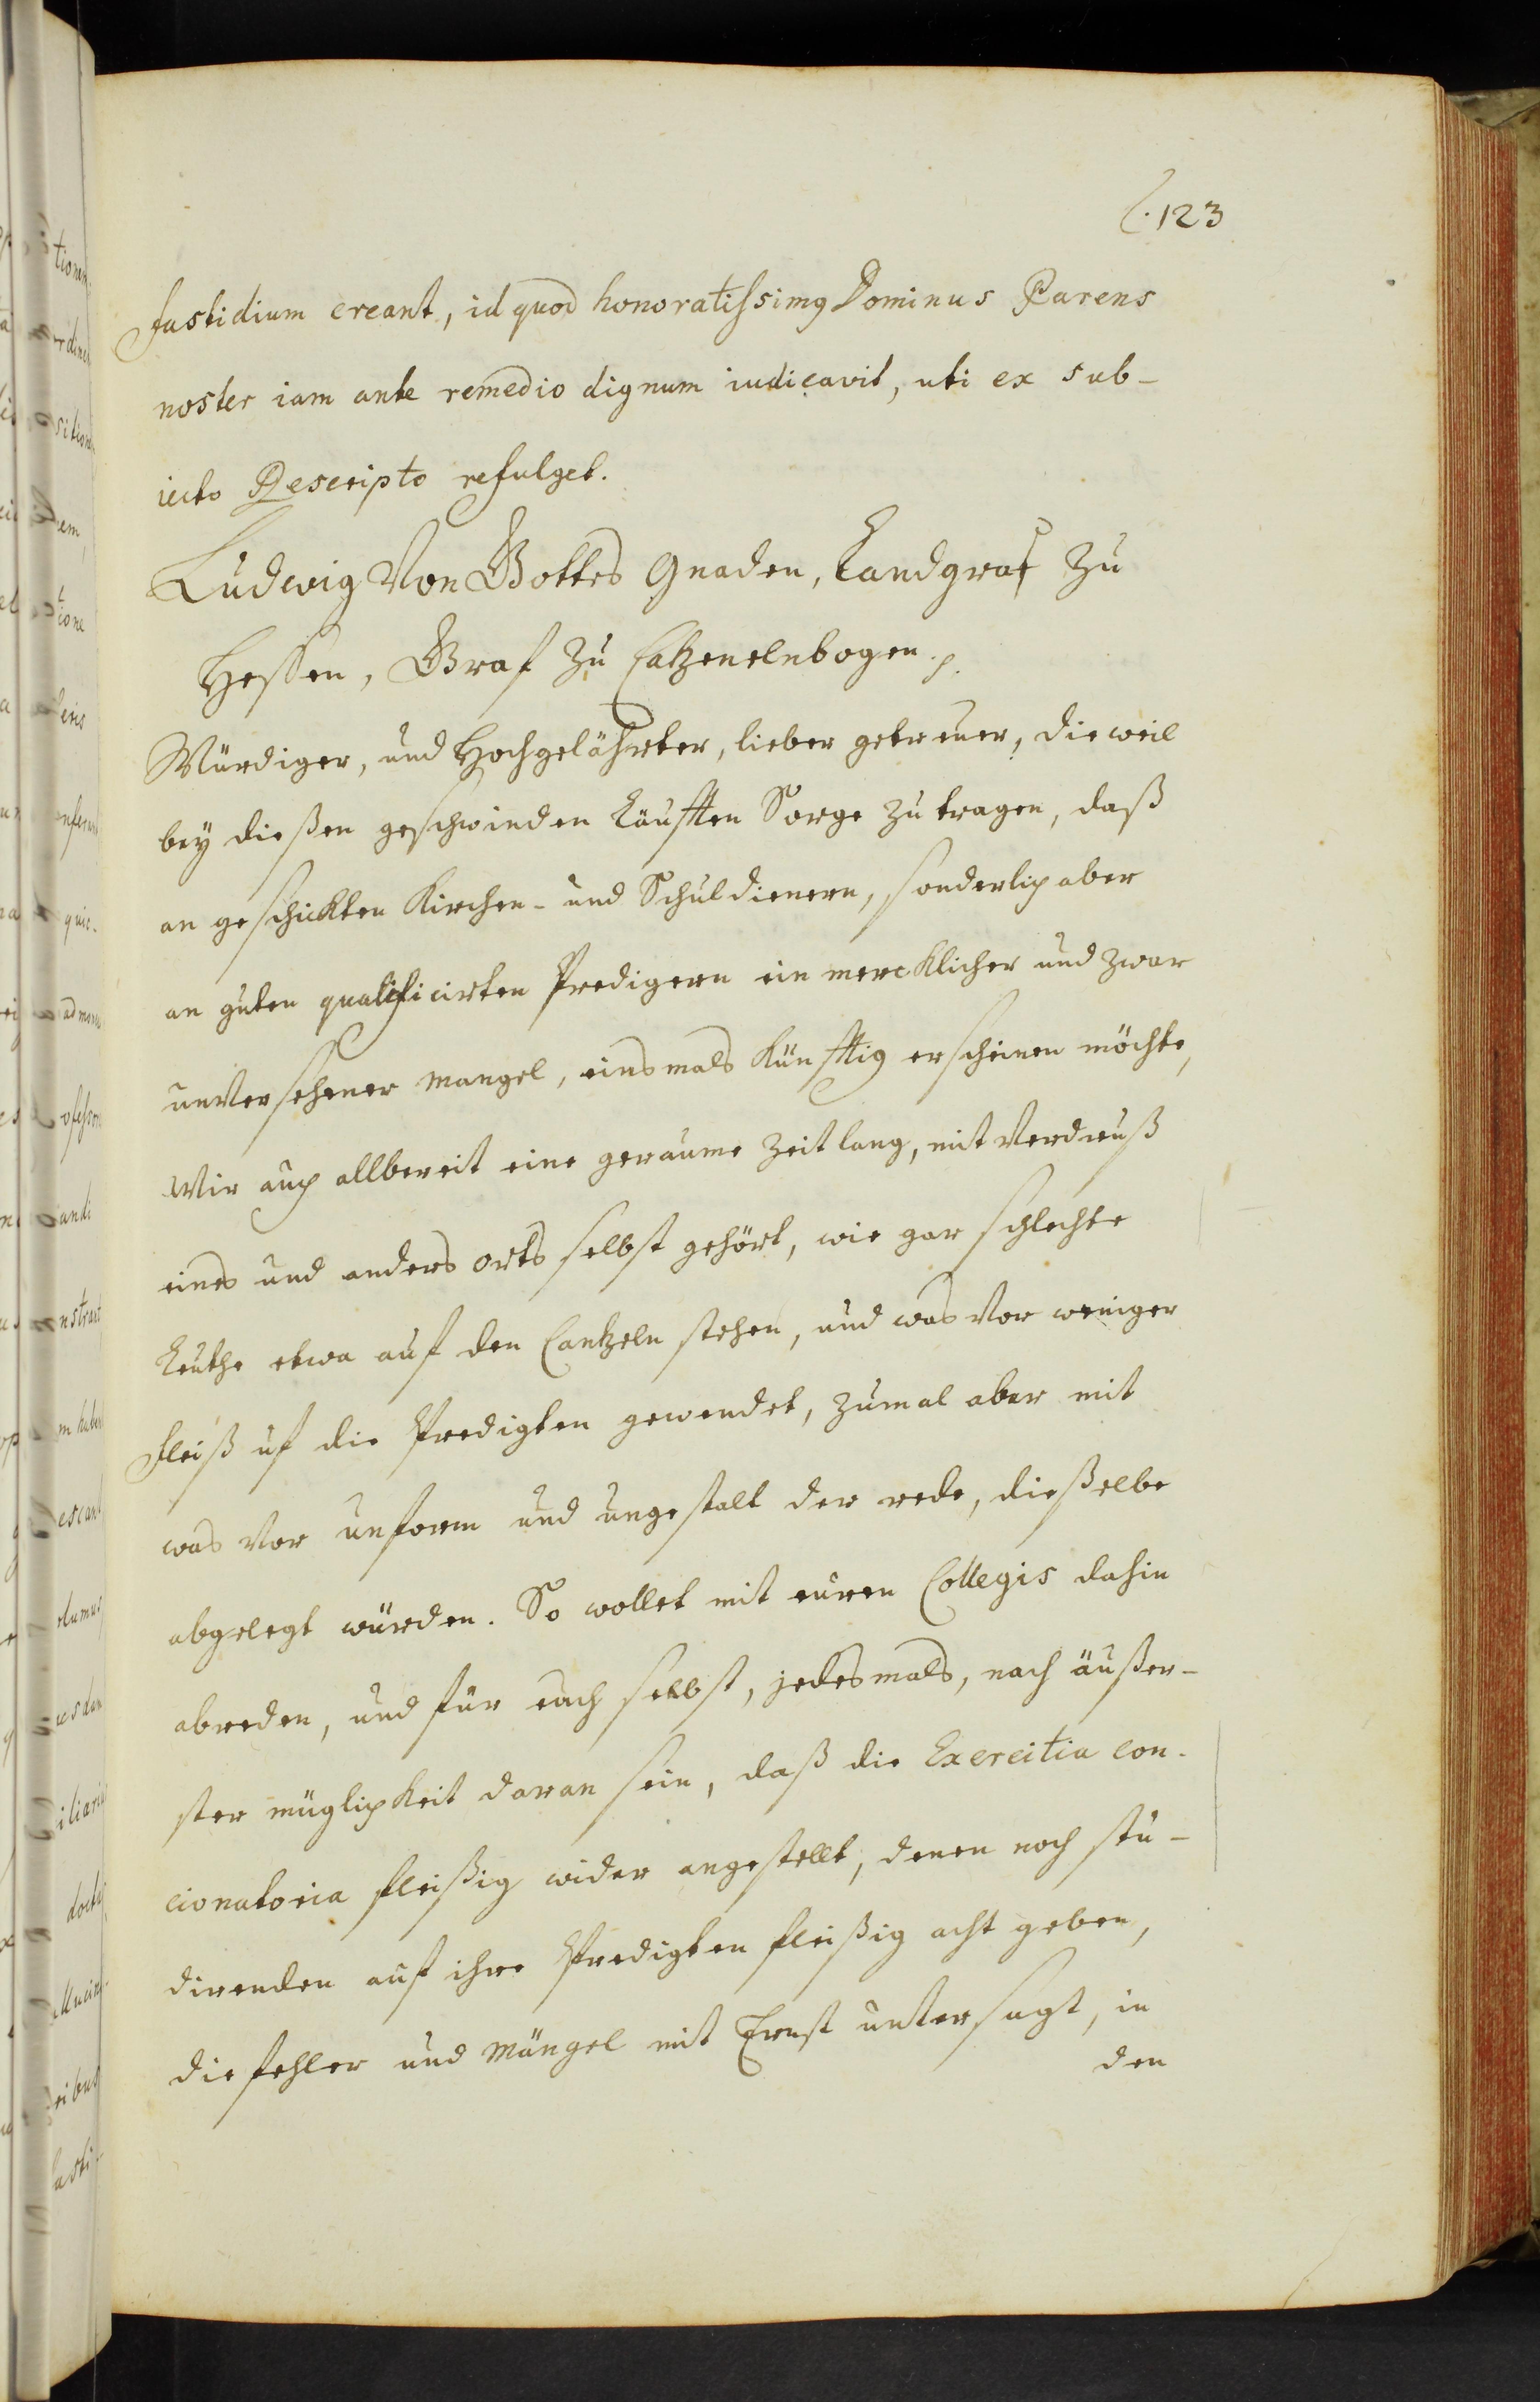 C. 123
fastidium creant, id quod honoratissimq Dominus Parens
noster iam ante remedio dignum iudicavit, uti ex sub-
iecto Rescripto refulget.
Ludwig Von Gottes Gnaden, Landgraf zu
Hessen, Graf zu Catzenelnbogen. p.
Würdiger, und Hochgelährter, lieber getreuer, die weil
bey dießen geschwinden Läufften Sorge zu tragen, daß
an geschickten Kirchen- und Schuldienern, sonderlich aber
an guten qualificirten Predigern ein mercklicher und zwar
unversehener mangel, einsmals künfftig erscheinen möchte,
Wir auch allbereit eine geraume Zeit lang, mit Verdruß
eines und anders orts selbst gehört, wie gar schlechte
Leuthe etwa auf den Cantzeln stehen, und was Vor weniger
fleiß uf die Predigten gewendet, zumal aber mit
was Vor unform und ungestalt der rede, dießelbe
abgelegt würden. So wollet mit euren Collegis dahin
abreden, und für euch selbst, jedesmals, nach äußer-
ster müglichkeit daran sein, daß die Exercitia con-
cionatoria fleißig wider angestellt, denen noch stu-
direnden auf ihre Predigten fleißig acht geben,
die fehler und mängel mit Ernst untersagt, in
den